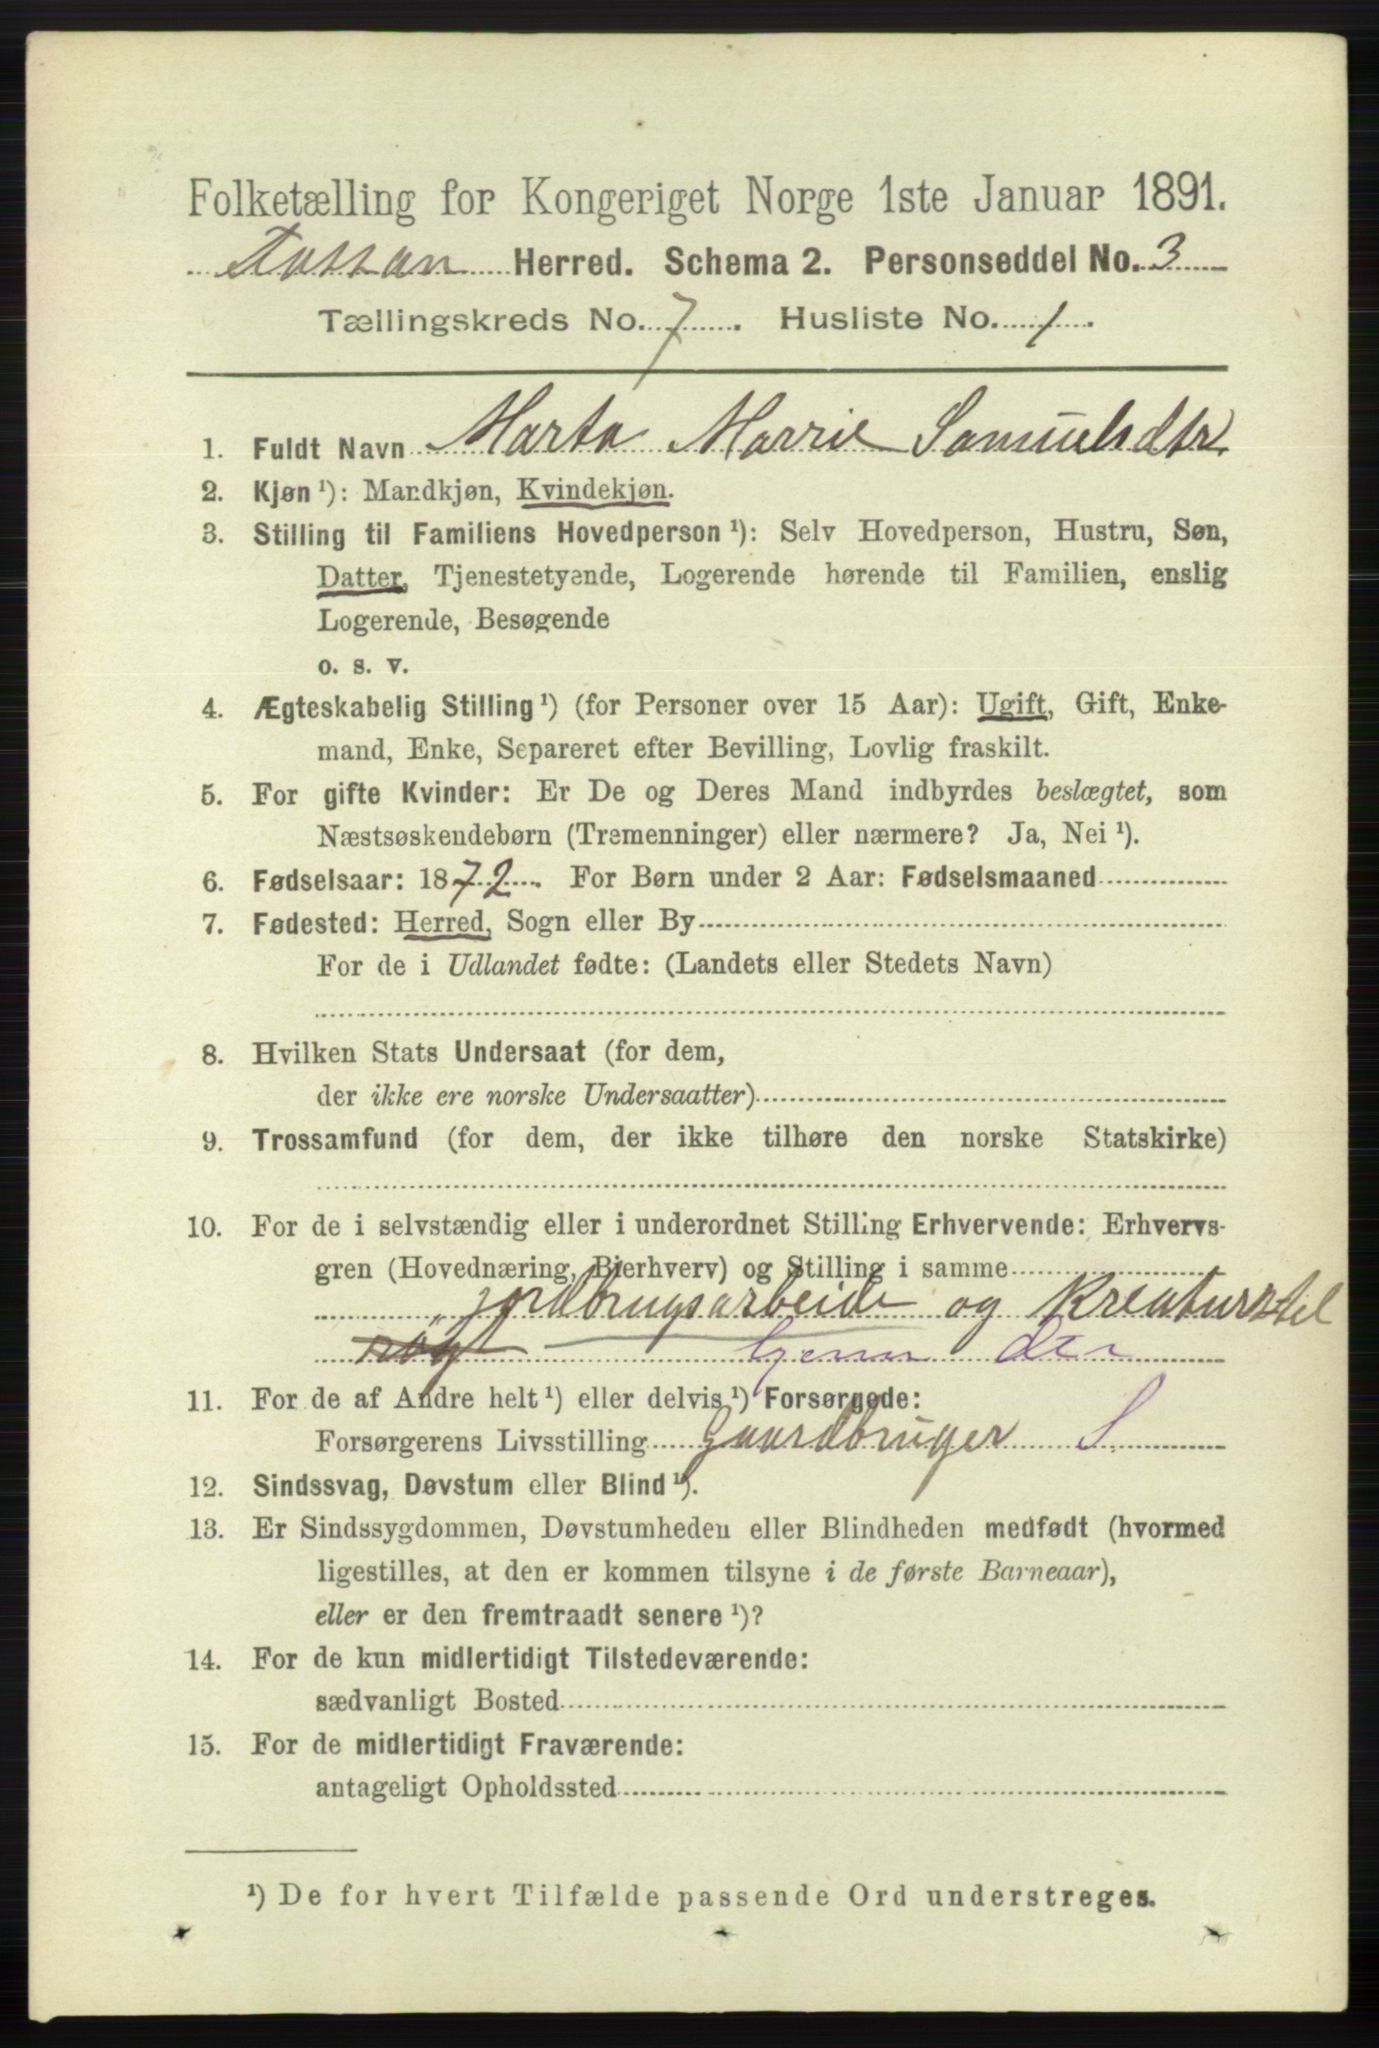 Folketælling for Kongeriget Norge 1ste Januar 1891.
Herred. Schema 2. Personseddel No. 3
Tællingskreds No. 7. Husliste No. 1.
1. Fuldt Navn Marta Marrie Samuelsdtr
2. Kjøn ¹): Mandkjøn, Kvindekjøn.
3. Stilling til Familiens Hovedperson ¹): Selv Hovedperson, Hustru, Søn,
Datter, Tjenestetyende, Logerende hørende til Familien, enslig
Logerende, Besøgende
o. s. v.
4. Ægteskabelig Stilling ¹) (for Personer over 15 Aar): Ugift, Gift, Enke-
mand, Enke, Separeret efter Bevilling, Lovlig fraskilt.
5. For gifte Kvinder: Er De og Deres Mand indbyrdes beslægtet, som
Næstsøskendebørn (Tremenninger) eller nærmere? Ja, Nei ¹).
6. Fødselsaar: 1872. For Børn under 2 Aar: Fødselsmaaned
7. Fødested: Herred, Sogn eller By
For de i Udlandet fødte: (Landets eller Stedets Navn)
8. Hvilken Stats Undersaat (for dem,
der ikke ere norske Undersaatter)
9. Trossamfund (for dem, der ikke tilhøre den norske Statskirke)
10. For de i selvstændig eller i underordnet Stilling Erhvervende: Erhvervs-
gren (Hovednæring, Bierhverv) og Stilling i samme
jordbrugsarbeide og Kreaturstel
røgt
11. For de af Andre helt ¹) eller delvis ¹) Forsørgede:
Forsørgerens Livsstilling Gaardbruger S
12. Sindssvag, Døvstum eller Blind ¹).
13. Er Sindssygdommen, Døvstumheden eller Blindheden medfødt (hvormed
ligestilles, at den er kommen tilsyne i de første Barneaar),
eller er den fremtraadt senere ¹)?
14. For de kun midlertidigt Tilstedeværende:
sædvanligt Bosted
15. For de midlertidigt Fraværende:
antageligt Opholdssted
¹) De for hvert Tilfælde passende Ord understreges.